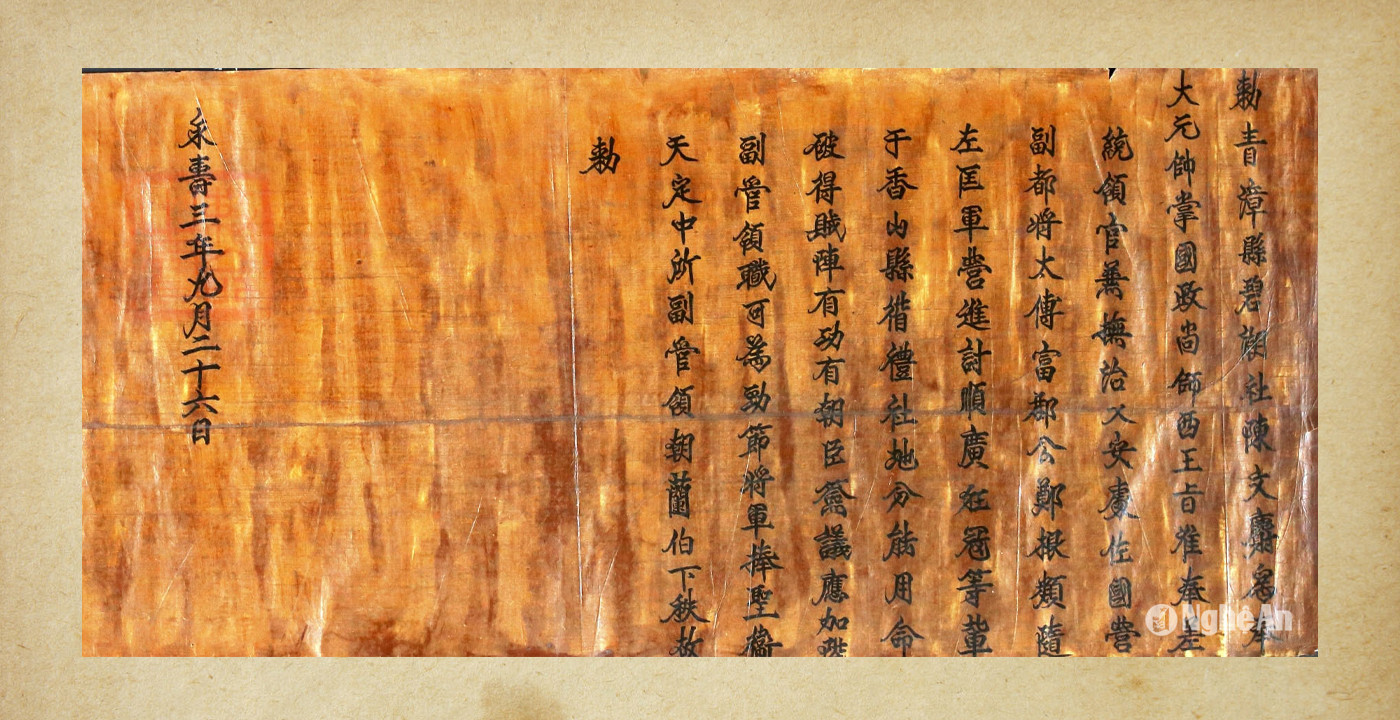 勅青漳縣碧漖社陳文奉
大元帥掌國政尚師西王旨准奉左
統領官兼撫治乂安處佐國營
副都將太傅富郡公鄭根類隨
左匡軍營進討順廣狂冦等輩
于香山縣循禮社地分能用命
破得賊陣有功有朝臣僉議應如陞
副管領職可為勁節將軍捧聖衛
天定中所副管領朝蘭伯下秩故
勅
永壽三年九月二十六日
Nghệ An